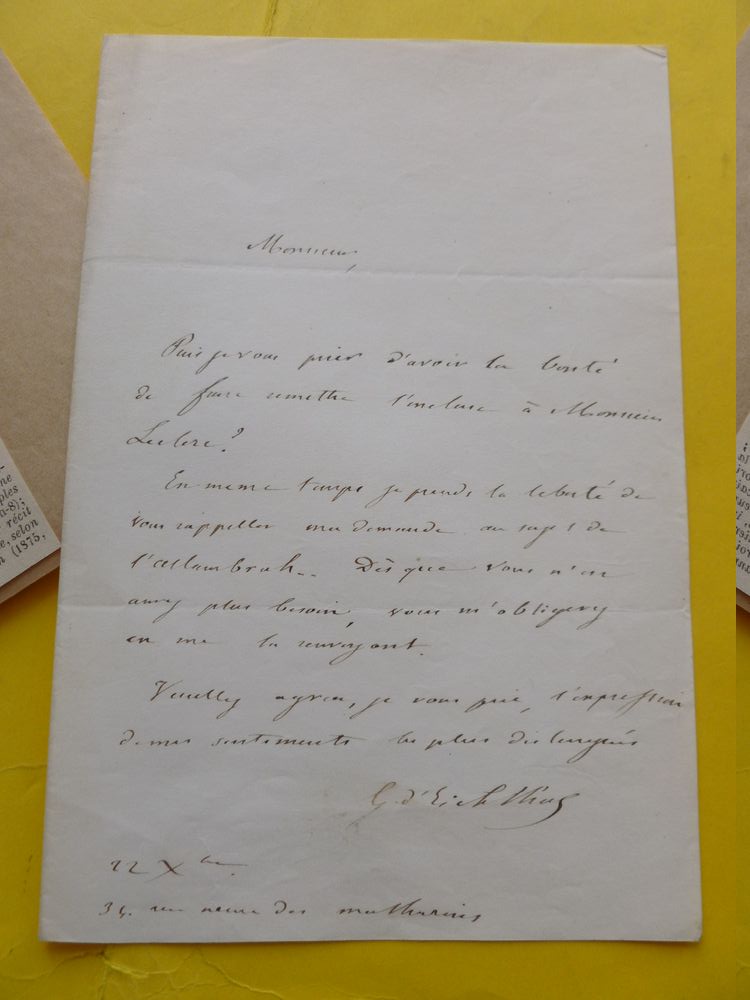 Monsieur,
Puis je vous prier d'avoir la bonté
de faire remettre l'incluse à Monsieur
Leclerc?
En meme temps je prends la liberté de
vous rappeller ma demande au sujet de
l'allambrah.. Dès que vous n'en
aurez plus besoin, vous m'obligerez
en me la renvoyant.
Veuillez agréer, je vous prie, l'expression
de mes sentiments les plus distingués
G. d'Eichthal
22 Xbre
34. rue neuve des mathurins
ne
ples
n-8);
récit
e, selon
n (1875,